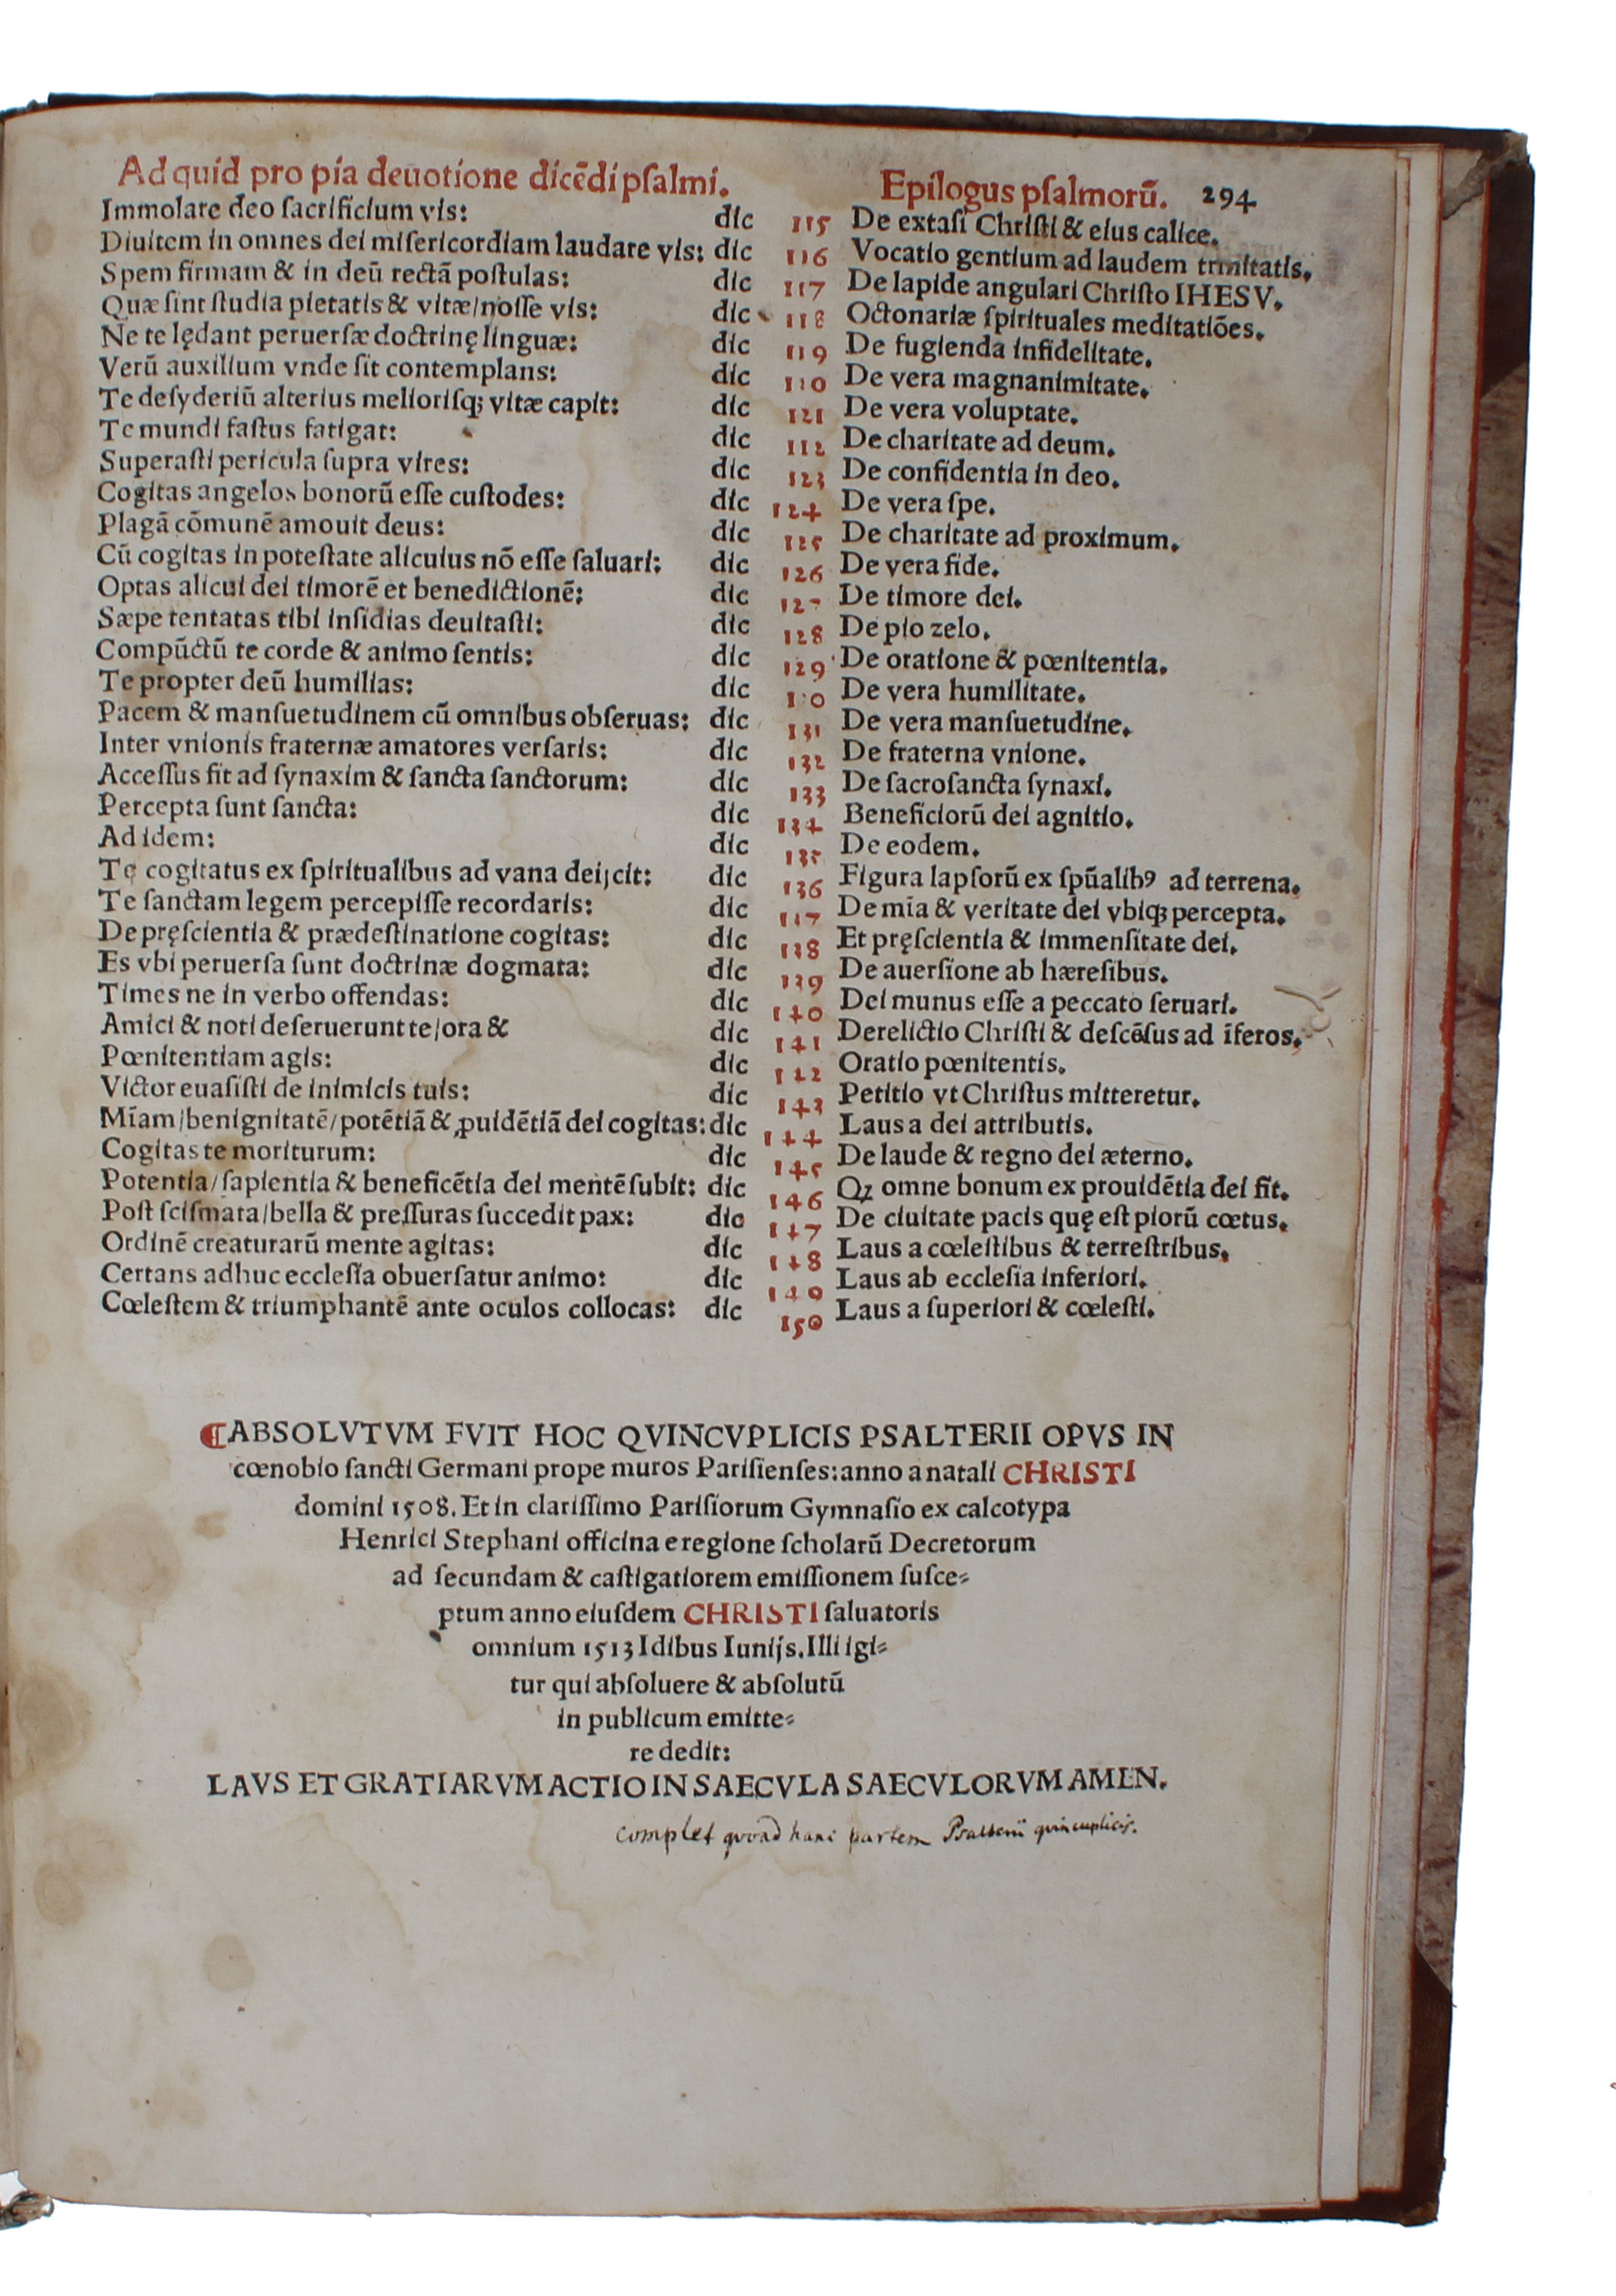 Ad quid pro pia deuotione dicēdi pſalmi. Epilogus pſalmorū. 294
Immolare deo ſacrificium vis: dic 115 De extaſi Chriſti & eius calice.
Diuitem in omnes dei miſericordiam laudare vis: dic 116 Vocatio gentium ad laudem trinitatis.
Spem firmam & in deū rectā poſtulas: dic 117 De lapide angulari Chriſto IHESV.
Quæ ſint ſtudia pietatis & vitæ/noſſe vis: dic 118 Octonariæ ſpirituales meditatiōes.
Ne te lędant peruerſæ doctrinę linguæ: dic 119 De fugienda infidelitate.
Verū auxilium vnde ſit contemplans: dic 110 De vera magnanimitate.
Te deſyderiū alterius meliorisq; vitæ capit: dic 121 De vera voluptate.
Te mundi faſtus fatigat: dic 112 De charitate ad deum.
Superaſti pericula ſupra vires: dic 123 De confidentia in deo.
Cogitas angelos bonorū eſſe cuſtodes: dic 124 De vera ſpe.
Plagā cōmunē amouit deus: dic 125 De charitate ad proximum.
Cū cogitas in poteſtate alicuius nō eſſe ſaluari: dic 126 De vera fide.
Optas alicui dei timorē et benedictionē: dic 127 De timore dei.
Sæpe tentatas tibi inſidias deuitaſti: dic 128 De pio zelo.
Compūctū te corde & animo ſentis: dic 129 De oratione & pœnitentia.
Te propter deū humilias: dic 1 0 De vera humilitate.
Pacem & manſuetudinem cū omnibus obſeruas: dic 131 De vera manſuetudine.
Inter vnionis fraternæ amatores verſaris: dic 132 De fraterna vnione.
Acceſſus fit ad ſynaxim & ſancta ſanctorum: dic 133 De ſacroſancta ſynaxi.
Percepta ſunt ſancta: dic 134 Beneficiorū dei agnitio.
Ad idem: dic 135 De eodem.
Te cogitatus ex ſpiritualibus ad vana deijcit: dic 136 Figura lapſorū ex ſpūalibꝰ ad terrena.
Te ſanctam legem percepiſſe recordaris: dic 137 De mīa & veritate dei vbiq; percepta.
De pręſcientia & prædeſtinatione cogitas: dic 138 Et pręſcientia & immenſitate dei.
Es vbi peruerſa ſunt doctrinæ dogmata: dic 139 De auerſione ab hæreſibus.
Times ne in verbo offendas: dic 140 Dei munus eſſe a peccato ſeruari.
Amici & noti deſeruerunt te/ora & dic 141 Derelictio Chriſti & deſcēſus ad īferos.
Pœnitentiam agis: dic 142 Oratio pœnitentis.
Victor euaſiſti de inimicis tuis: dic 143 Petitio vt Chriſtus mitteretur.
Mīam/benignitatē/potētiā & ꝓuidētiā dei cogitas: dic 144 Laus a dei attributis.
Cogitas te moriturum: dic 145 De laude & regno dei æterno.
Potentia/ſapientia & beneficētia dei mentē ſubit: dic 146 Qꝫ omne bonum ex prouidētia dei fit.
Poſt ſciſmata/bella & preſſuras ſuccedit pax: dic 147 De ciuitate pacis quę eſt piorū cœtus.
Ordinē creaturarū mente agitas: dic 148 Laus a cœleſtibus & terreſtribus.
Certans adhuc eccleſia obuerſatur animo: dic 149 Laus ab eccleſia inferiori.
Cœleſtem & triumphantē ante oculos collocas: dic 150 Laus a ſuperiori & cœleſti.
¶ABSOLVTVM FVIT HOC QVINCVPLICIS PSALTERII OPVS IN
cœnobio ſancti Germani prope muros Pariſienſes: anno a natali CHRISTI
domini 1508. Et in clariſſimo Pariſiorum Gymnaſio ex calcotypa
Henrici Stephani officina e regione ſcholarū Decretorum
ad ſecundam & caſtigatiorem emiſſionem ſuſce-
ptum anno eiuſdem CHRISTI ſaluatoris
omnium 1513 Idibus Iunijs. Illi igi-
tur qui abſoluere & abſolutū
in publicum emitte-
re dedit:
LAVS ET GRATIARVM ACTIO IN SAECVLA SAECVLORVM AMEN.
complet quoad hanc partem Psalterii quincuplicis.